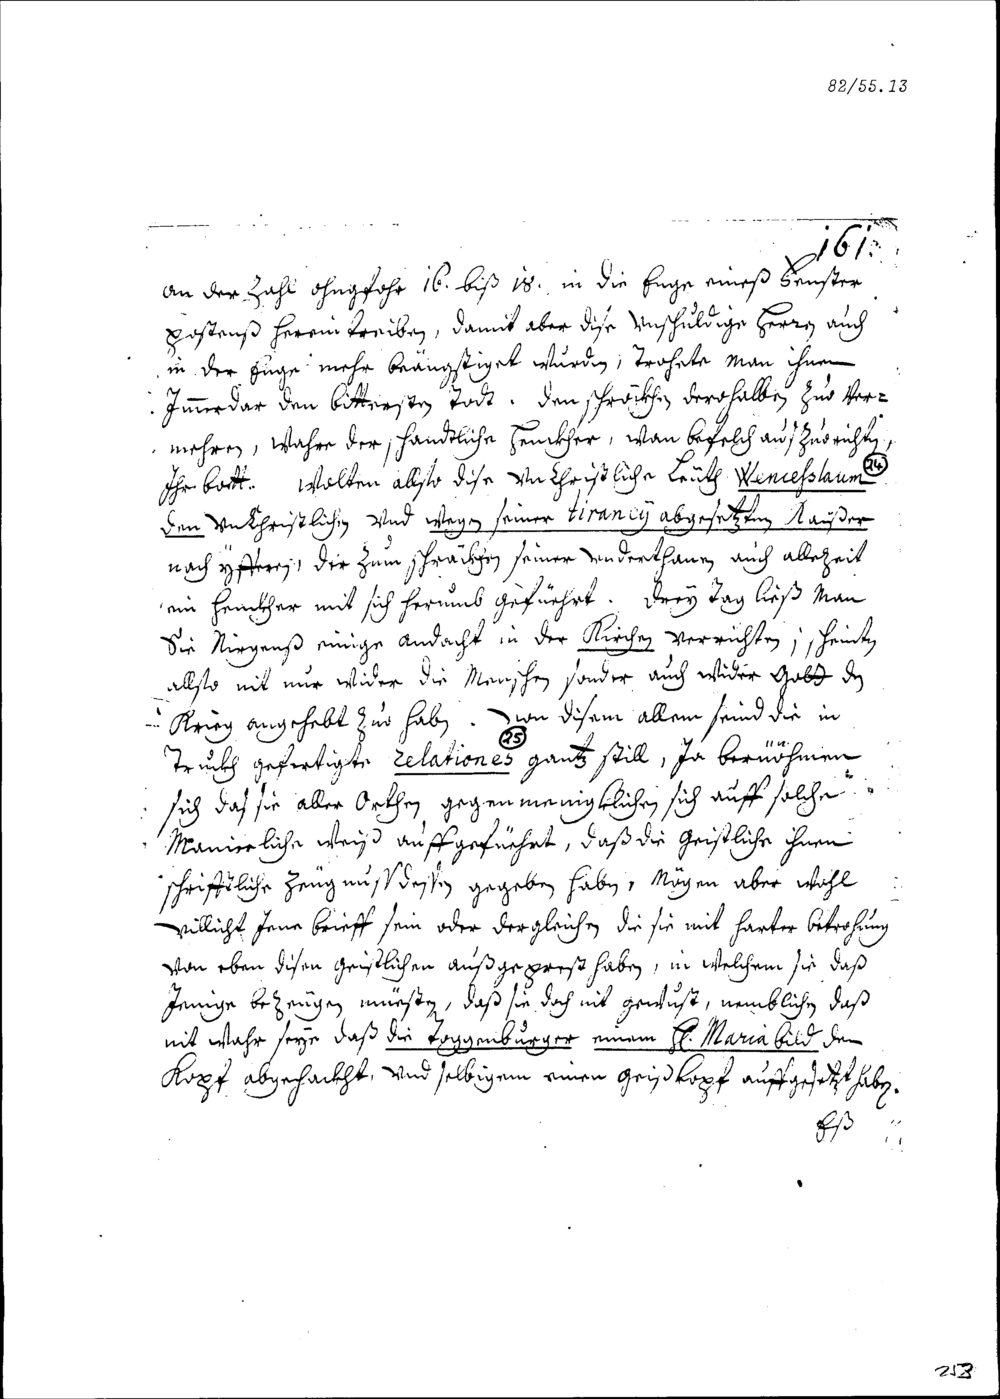 82/55.13
161.
an der Zahl ohngfohr 16. biß 18. in die Enge eineß Fenster
postenß herein treiben, damit aber dise unschuldige Herren auch
in der Enge mehr beängstiget wurden, trohete man ihnen
Immerdar den bittersten Todt. den schröckhen derohalben zuo ver=
mehren, wahre der schandtliche Henckher, wan befelch auszuorichten,
Ihr bott. Wolten allso dise unchristliche Leüth Wencesslaum (24)
den unchristlichen und wegen seiner tiraney abgesetzten Kaÿßer
nach yfferen, der zum schräckhen seiner underthanen auch allezeit
ein Henckher mit sich herumb gefüehrt. Drey Tag ließ man
Sie Nirgenß einige andacht in der Kirchen verrichten, scheinten
allso nit nur wider die Menschen sonder auch wider Gott den
Krieg angehebt zuo haben. Von disem allem seind die in
Truckh gefertigte relationes (25) gantz still, Ja berüöhmen
sich das sie aller Orthen gegen menigklichen sich auff solche
Manierliche weiß auffgefüehrt, daß die Geistliche ihnen
schrifftliche Zeugnuss dessen gegeben haben, Mögen aber wohl
villicht Jene brieff sein oder dergleichen die sie mit harter betrohung
von eben disen Geistlichen außgeprest haben, in welchem sie daß
Jenige bezeügen müesten, daß sie doch nit gewust, nemblichen daß
nit wahr seye daß die Toggenburger einem H. Maria bild den
Kopf abgehackht, und selbigem einen Geißkopf auffgesetzt haben.
Eß
253